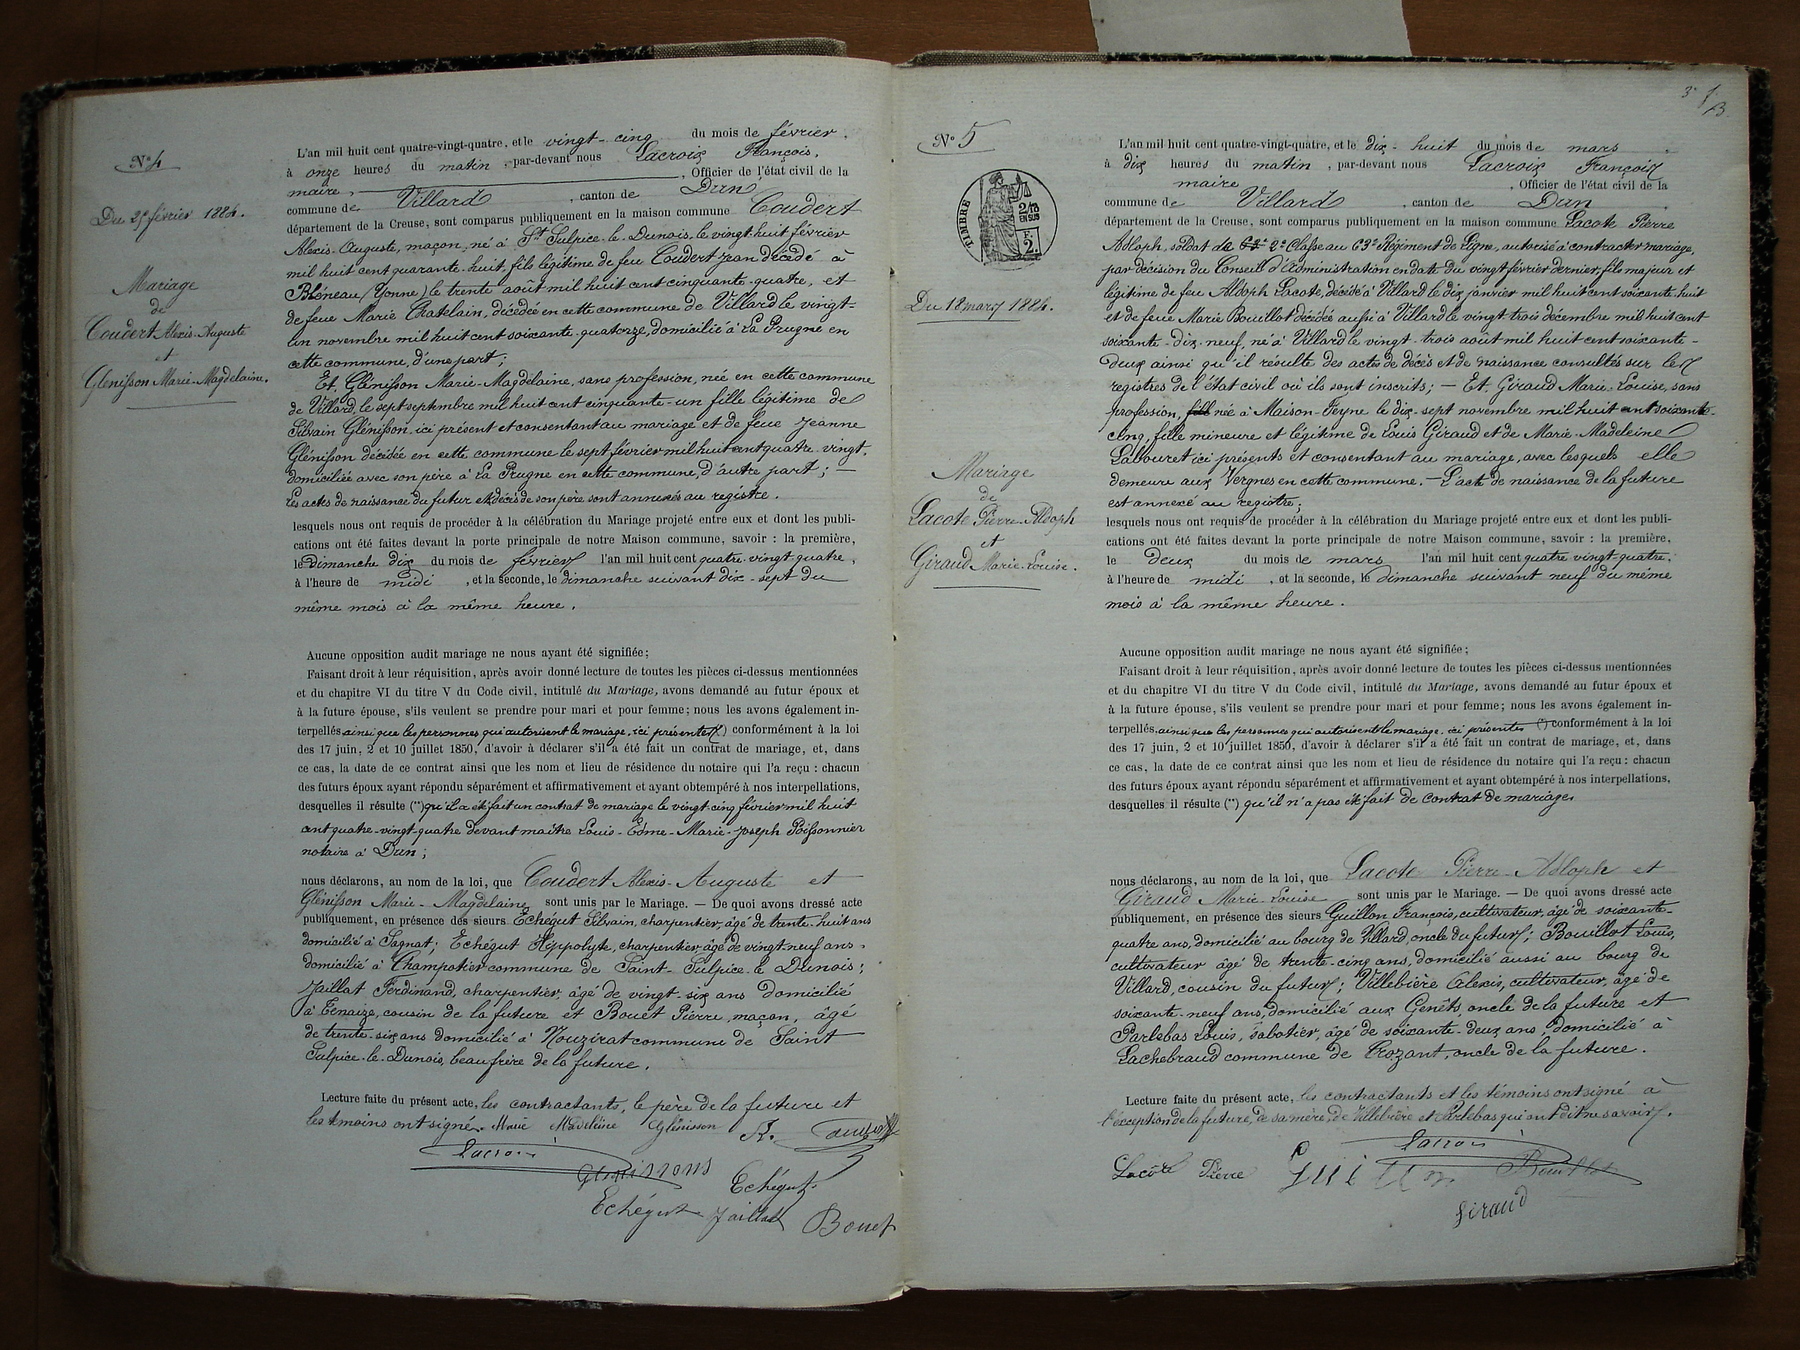 N° 4
Du 25 février 1884.
Mariage
de
Coudert Alexis-Auguste
et
Glénisson Marie-Magdelaine.
L'an mil huit cent quatre-vingt-quatre, et le vingt-cinq du mois de février.
à onze heures du matin, par-devant nous Lacroix François,
maire, Officier de l'état civil de la
commune de Villard, canton de Dun
département de la Creuse, sont comparus publiquement en la maison commune Coudert
Alexis-Auguste, maçon, né à St Sulpice-le-Dunois, le vingt-huit février
mil huit cent quarante-huit, fils légitime de feu Coudert Jean décédé à
Bléneau (Yonne) le trente août mil huit cent cinquante-quatre, et
de feue Marie Chatelain, décédée en cette commune de Villard le vingt-
un novembre mil huit cent soixante-quatorze, domicilié à La Prugne en
cette commune, d'une part;
Et, Glénisson Marie-Magdelaine, sans profession, née en cette commune
de Villard, le sept septembre mil huit cent cinquante-un fille légitime de
Silvain Glénisson, ici présent et consentant au mariage et de feue Jeanne
Glénisson décédée en cette commune le sept février mil huit cent quatre-vingt,
domiciliée avec son père à La Prugne en cette commune, d'autre part; —
Les actes de naissance du futur et décès de son père sont annexés au registre.
lesquels nous ont requis de procéder à la célébration du Mariage projeté entre eux et dont les publi-
cations ont été faites devant la porte principale de notre Maison commune, savoir : la première,
le dimanche dix du mois de février l'an mil huit cent quatre-vingt quatre,
à l'heure de midi, et la seconde, le dimanche suivant dix-sept du
même mois à la même heure.
Aucune opposition audit mariage ne nous ayant été signifiée;
Faisant droit à leur réquisition, après avoir donné lecture de toutes les pièces ci-dessus mentionnées
et du chapitre VI du titre V du Code civil, intitulé du Mariage, avons demandé au futur époux et
à la future épouse, s'ils veulent se prendre pour mari et pour femme; nous les avons également in-
terpellés ainsi que les personnes qui autorisent le mariage, ici présentes (*) conformément à la loi
des 17 juin, 2 et 10 juillet 1850, d'avoir à déclarer s'il a été fait un contrat de mariage, et, dans
ce cas, la date de ce contrat ainsi que les nom et lieu de résidence du notaire qui l'a reçu : chacun
des futurs époux ayant répondu séparément et affirmativement et ayant obtempéré à nos interpellations,
desquelles il résulte (**) qu'il a été fait un contrat de mariage le vingt cinq février mil huit
cent quatre-vingt-quatre devant maître Louis-Edme-Marie-Joseph Poissonnier
notaire à Dun;
nous déclarons, au nom de la loi, que Coudert Alexis-Auguste et
Glénisson Marie-Magdelaine, sont unis par le Mariage. — De quoi avons dressé acte
publiquement, en présence des sieurs Echégut Silvain, charpentier, âgé de trente-huit ans
domicilié à Sagnat; Echégut Hippolyte, charpentier, âgé de vingt-neuf ans,
domicilié à Champotier commune de Saint-Sulpice-le-Dunois;
Jaillat Ferdinand, charpentier, âgé de vingt-six ans domicilié
à Tenaize, cousin de la future et Bouet Pierre, maçon, âgé
de trente-six ans domicilié à Nouzirat commune de Saint
Sulpice-le-Dunois, beau frère de la future.
Lecture faite du présent acte, les contractants, le père de la future et
les témoins ont signé. Marie Madeleine Glénisson
Lacroix
Echégut
Echégut Jaillat Bouet
3e
N° 5
TIMBRE
2/10
EN SUS
F.
2.
Du 18 mars 1884.
Mariage
de
Lacote Pierre-Adloph
et
Giraud Marie-Louise.
L'an mil huit cent quatre-vingt-quatre, et le dix-huit du mois de mars
à dix heures du matin, par-devant nous Lacroix François
maire, Officier de l'état civil de la
commune de Villard, canton de Dun
département de la Creuse, sont comparus publiquement en la maison commune Lacote Pierre
Adloph, soldat de 2e Classe au 63e Régiment de Ligne, autorisé à contracter mariage,
par décision du Conseil d'Administration en date du vingt février dernier, fils majeur et
légitime de feu Adloph Lacote, décédé à Villard le dix janvier mil huit cent soixante-huit
et de feue Marie Bouillot décédée aussi à Villard le vingt trois décembre mil huit cent
soixante-dix-neuf, né à Villard le vingt-trois août mil huit cent soixante-
deux ainsi qu'il résulte des actes de décès et de naissance consultés sur les
registres de l'état civil où ils sont inscrits; — Et Giraud Marie-Louise, sans
profession, née à Maison-Feyne le dix-sept novembre mil huit cent soixante-
cinq, fille mineure et légitime de Louis Giraud et de Marie-Madeleine
Labouret ici présents et consentant au mariage, avec lesquels elle
demeure aux Vergnes en cette commune. — L'acte de naissance de la future
est annexé au registre;
lesquels nous ont requis de procéder à la célébration du Mariage projeté entre eux et dont les publi-
cations ont été faites devant la porte principale de notre Maison commune, savoir : la première,
le deux du mois de mars l'an mil huit cent quatre vingt-quatre,
à l'heure de midi, et la seconde, le dimanche suivant neuf du même
mois à la même heure.
Aucune opposition audit mariage ne nous ayant été signifiée;
Faisant droit à leur réquisition, après avoir donné lecture de toutes les pièces ci-dessus mentionnées
et du chapitre VI du titre V du Code civil, intitulé du Mariage, avons demandé au futur époux et
à la future épouse, s'ils veulent se prendre pour mari et pour femme; nous les avons également in-
terpellés, ainsi que les personnes qui autorisent le mariage, ici présentes (*) conformément à la loi
des 17 juin, 2 et 10 juillet 1850, d'avoir à déclarer s'il a été fait un contrat de mariage, et, dans
ce cas, la date de ce contrat ainsi que les nom et lieu de résidence du notaire qui l'a reçu : chacun
des futurs époux ayant répondu séparément et affirmativement et ayant obtempéré à nos interpellations,
desquelles il résulte (**) qu'il n'a pas été fait de contrat de mariage.
nous déclarons, au nom de la loi, que Lacote Pierre-Adloph et
Giraud Marie Louise sont unis par le Mariage. — De quoi avons dressé acte
publiquement, en présence des sieurs Guillon François, cultivateur, âgé de soixante-
quatre ans, domicilié au bourg de Villard, oncle du futur; Bouillot Louis,
cultivateur âgé de trente-cinq ans, domicilié aussi au bourg de
Villard, cousin du futur; Villebière Alexis, cultivateur, âgé de
soixante-neuf ans, domicilié aux Genêts, oncle de la future et
Parlebas Louis, sabotier, âgé de soixante-deux ans, domicilié à
Lachebraud commune de Crozant, oncle de la future.
Lecture faite du présent acte, les contractants et les témoins ont signé à
l'exception de la future, de sa mère, de Villebière et Parlebas qui ont dit ne savoir.
Lacroix
Lacôte Pierre Guillon Bouillot
Giraud